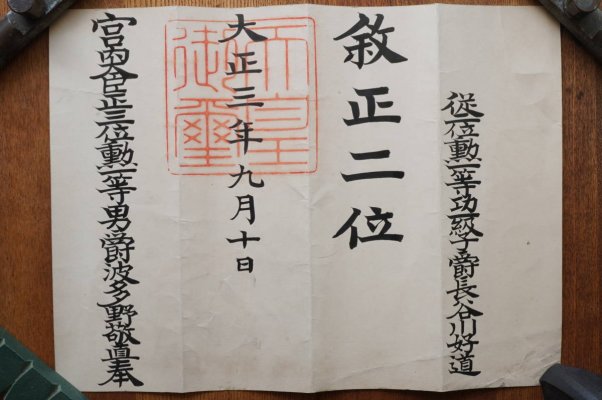 従二位勲一等功一級子爵長谷川好道
敘正二位
大正三年九月十日
天皇御璽
宮内大臣正三位勲一等男爵波多野敬直奉